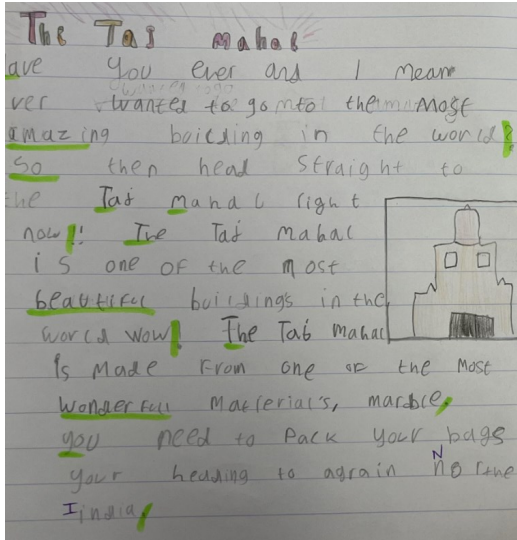 The Taj mahal
ave you ever and I mean
ver wanted to go to the Most
amazing building in the world?
So then head straight to
he Taj mahal right
now!! The Taj mahal
is one of the most
beautiful buildings in the
world wow! The Taj mahal
is Made from one of the Most
wonderful Matierial's, marble,
you need to Pack your bags
your heading to agrain North
India.